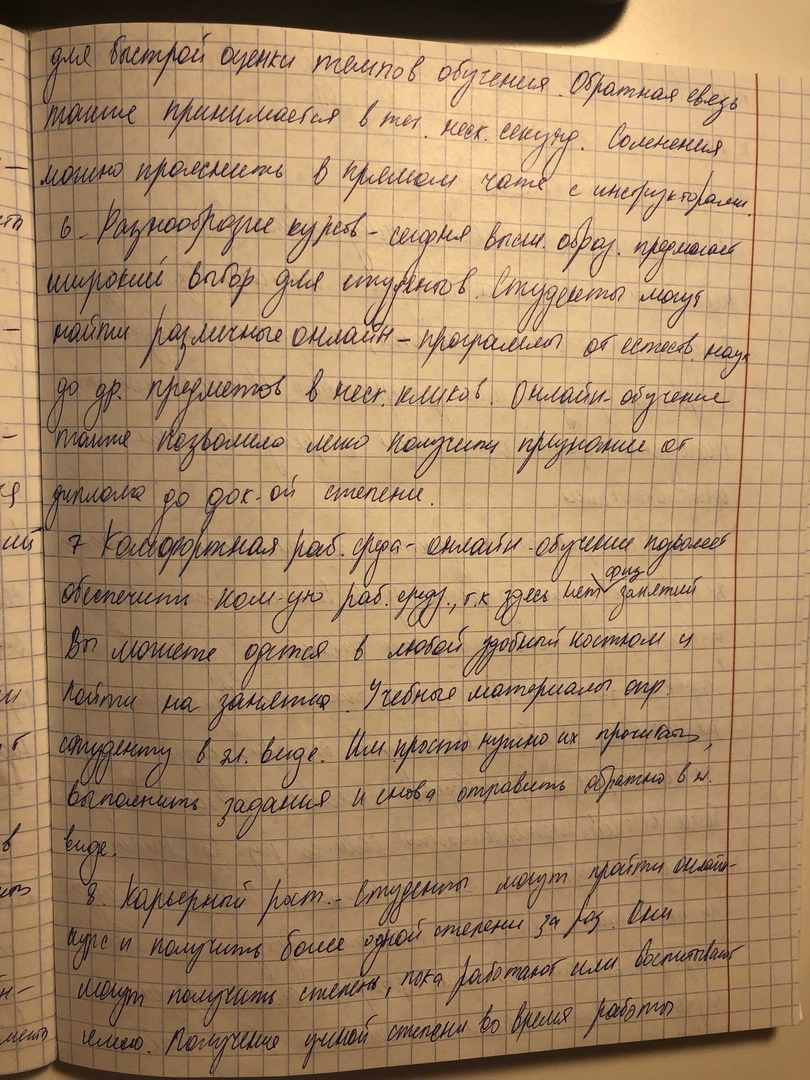 для быстрой оценки темпов обучения. Обратная связь
также принимается в теч. неск. секунд. Сомнения
можно прояснить в прямом чате с инструкторами.
6. Разнообразие курсов – сегодня высш. образ. предлагает
широкий выбор для студентов. Студенты могут
найти различные онлайн – программы от естеств. наук
до др. предметов в неск. кликов. Онлайн-обучение
также позволило легко получить признание от
диплома до док-ой степени.
7 Комфортная раб. среда – онлайн-обучение позволяет
обеспечить ком-ую раб. среду, т.к здесь нет физ занятий
Вы можете одется в любой удобный костюм и
пойти на занятия. Учебные материалы отпр.
студенту в эл. виде. Им просто нужно их прочитать,
выполнить задания и снова отправить обратно в эл.
виде.
8. Карьерный рост. – Студенты могут пройти онлайн-
курс и получить более одной степени за раз. Они
могут получить степень, пока работают или воспитывают
семью. Получение учёной степени во время работы